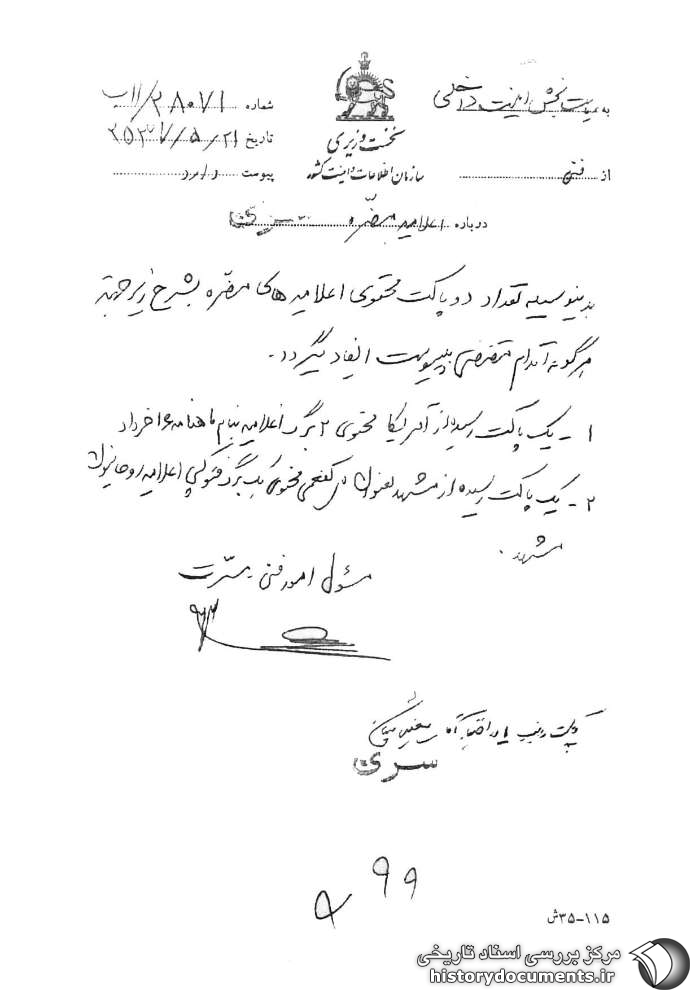 به ریاست بخش امنیت داخلی
از فنی
نخست وزیری
سازمان اطلاعات و امنیت کشور
شماره ۲۸۰۷۱/
تاریخ ۲۵۳۷/۵/۲۱
پیوست دارد
درباره اعلامیه مضره
سری
بدینوسیله تعداد دو پاکت محتوی اعلامیه های مضره بشرح زیر جهت
هرگونه اقدام مقتضی بپیوست ایفاد میگردد.
۱ - یک پاکت رسیده از آمریکا محتوی ۲ برگ اعلامیه بنام ماهنامه ۱۶ خرداد
۲ - یک پاکت رسیده از مشهد بعنوان محتوی یک برگ فتوکپی اعلامیه روحانیون
مشهد.
مسئول امور فنی
سری
۹۹
۱۱۵-۳۵ش
مرکز بررسی اسناد تاریخی
historydocuments.ir